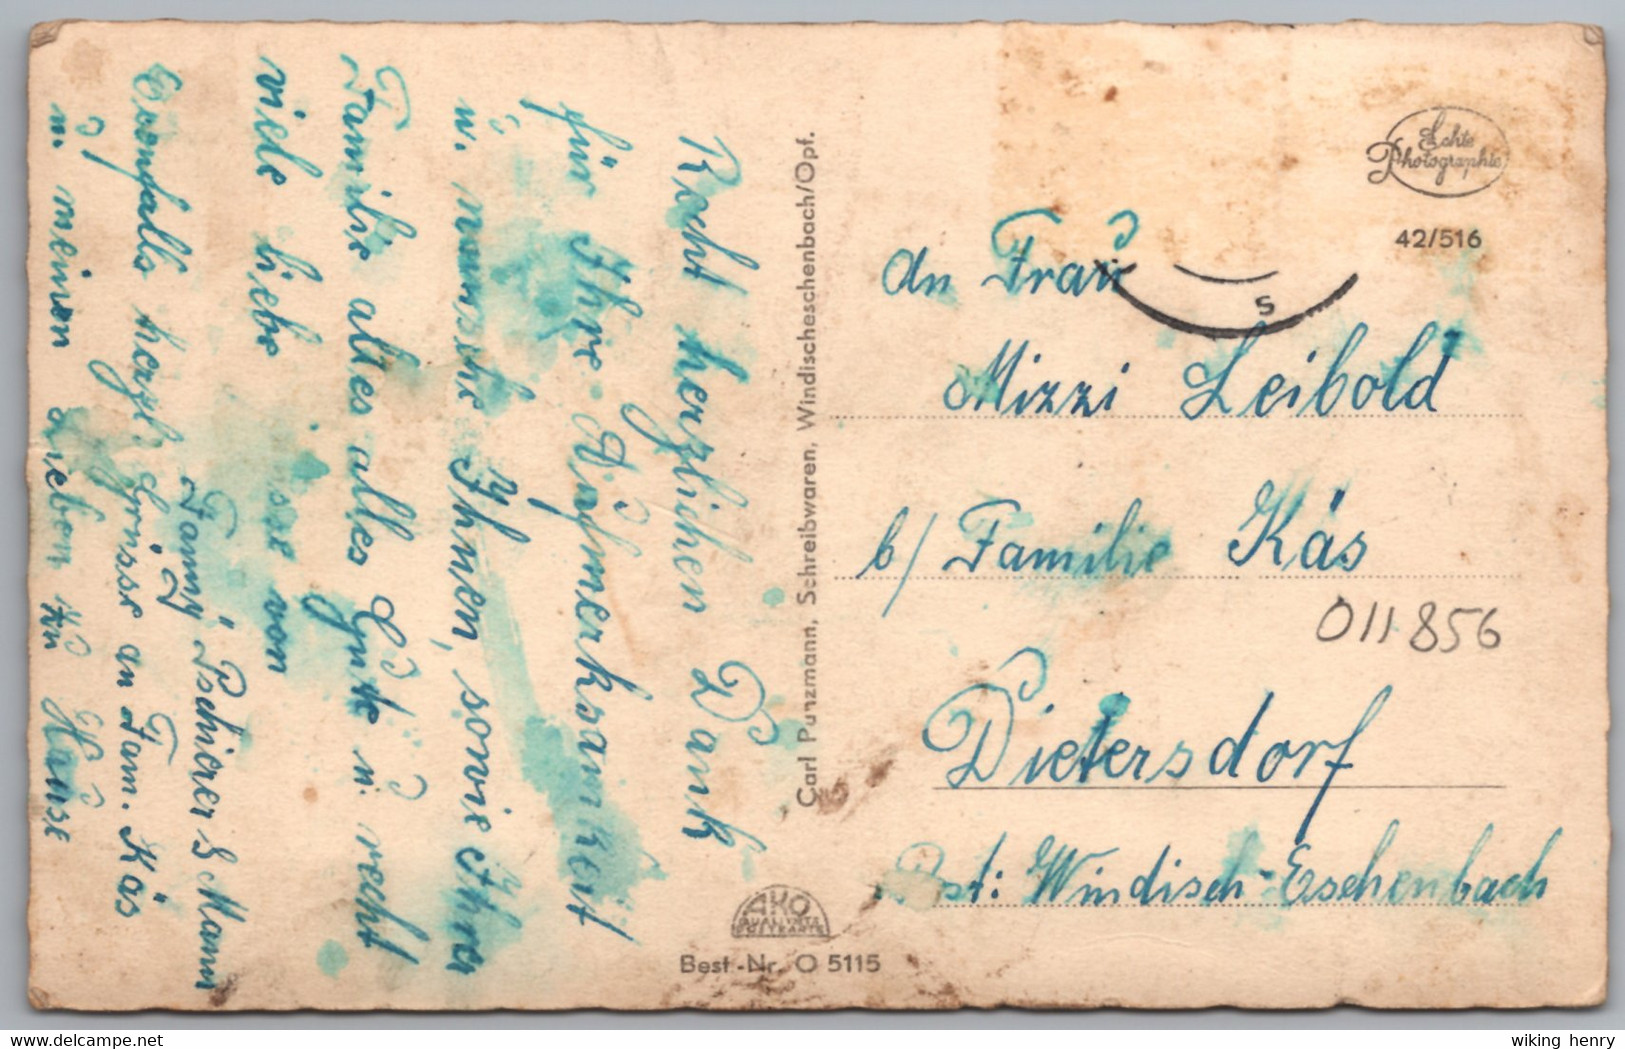 Recht herzlichen Dank
für Ihre Aufmerksamkeit
u. wünsche Ihnen, sowie Ihrer
Familie alles alles Gute u. recht
viele liebe Grüsse von
Fanny Pschierer & Mann
Ebenfalls herzl. Grüsse an Fam. Käs
u. meinen Lieben zu Hause
Carl Punzmann, Schreibwaren, Windischeschenbach/Opf.
AHO
QUALITÄTS
POSTKARTE
Best.-Nr. O 5115
Echte
Photographie
42/516
S
An Frau
Mizzi Leibold
b/ Familie Käs
011856
Dietersdorf
Post: Windisch-Eschenbach
delcampe.net
wiking henry